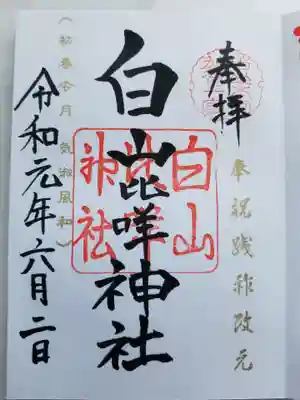 奉拝
奉祝践祚改元
白山比咩神社
白山
比咩
神社
（初春令月 気淑風和）
令和元年六月二日